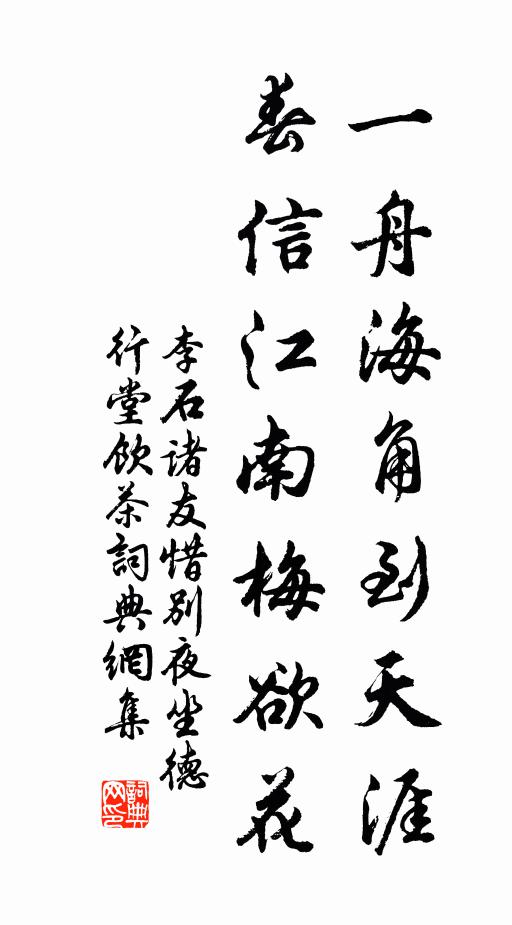 一舟海角到天涯
春信江南梅欲花
李石諸友惜別夜坐德
行堂飲茶詞典網集
詞典
网印